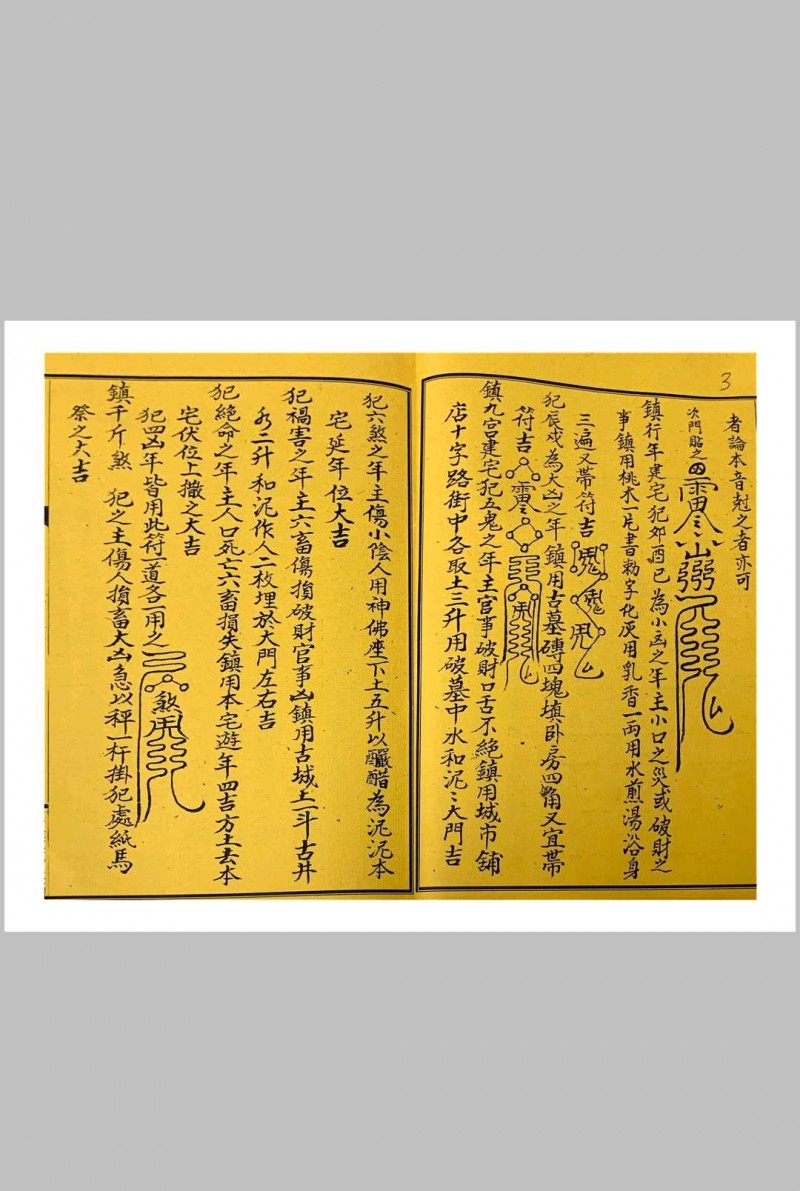 3
者論本音尅之者亦可
次門貼之
鎮行年建宅犯夘酉巳為小凶之年主小口之災或破財之
事鎮用桃木一片書勑字化灰用乳香一兩用水煎湯浴身
三遍又帶符吉
犯辰戍為大凶之年鎮用古墓磚四塊埴卧房四角又宜帶
符吉
鎮九宫建宅犯五鬼之年主官事破財口舌不絶鎮用城市舖
店十字路街中各取土三升用破墓中水和泥〻大門吉
犯六煞之年主傷小陰人用神佛座下土五升以釅醋為泥泥本
宅延年位大吉
犯禍害之年主六畜傷損破財官事凶鎮用古城土一斗古井
水二升和泥作人二枚埋於大門左右吉
犯絶命之年主人口死亡六畜損失鎮用本宅遊年四吉方土去本
宅伏位上撒之大吉
犯四凶年皆用此符一道各一用之
鎮千斤煞 犯之主傷人損畜大凶急以秤一杆掛犯處紙馬
祭之大吉